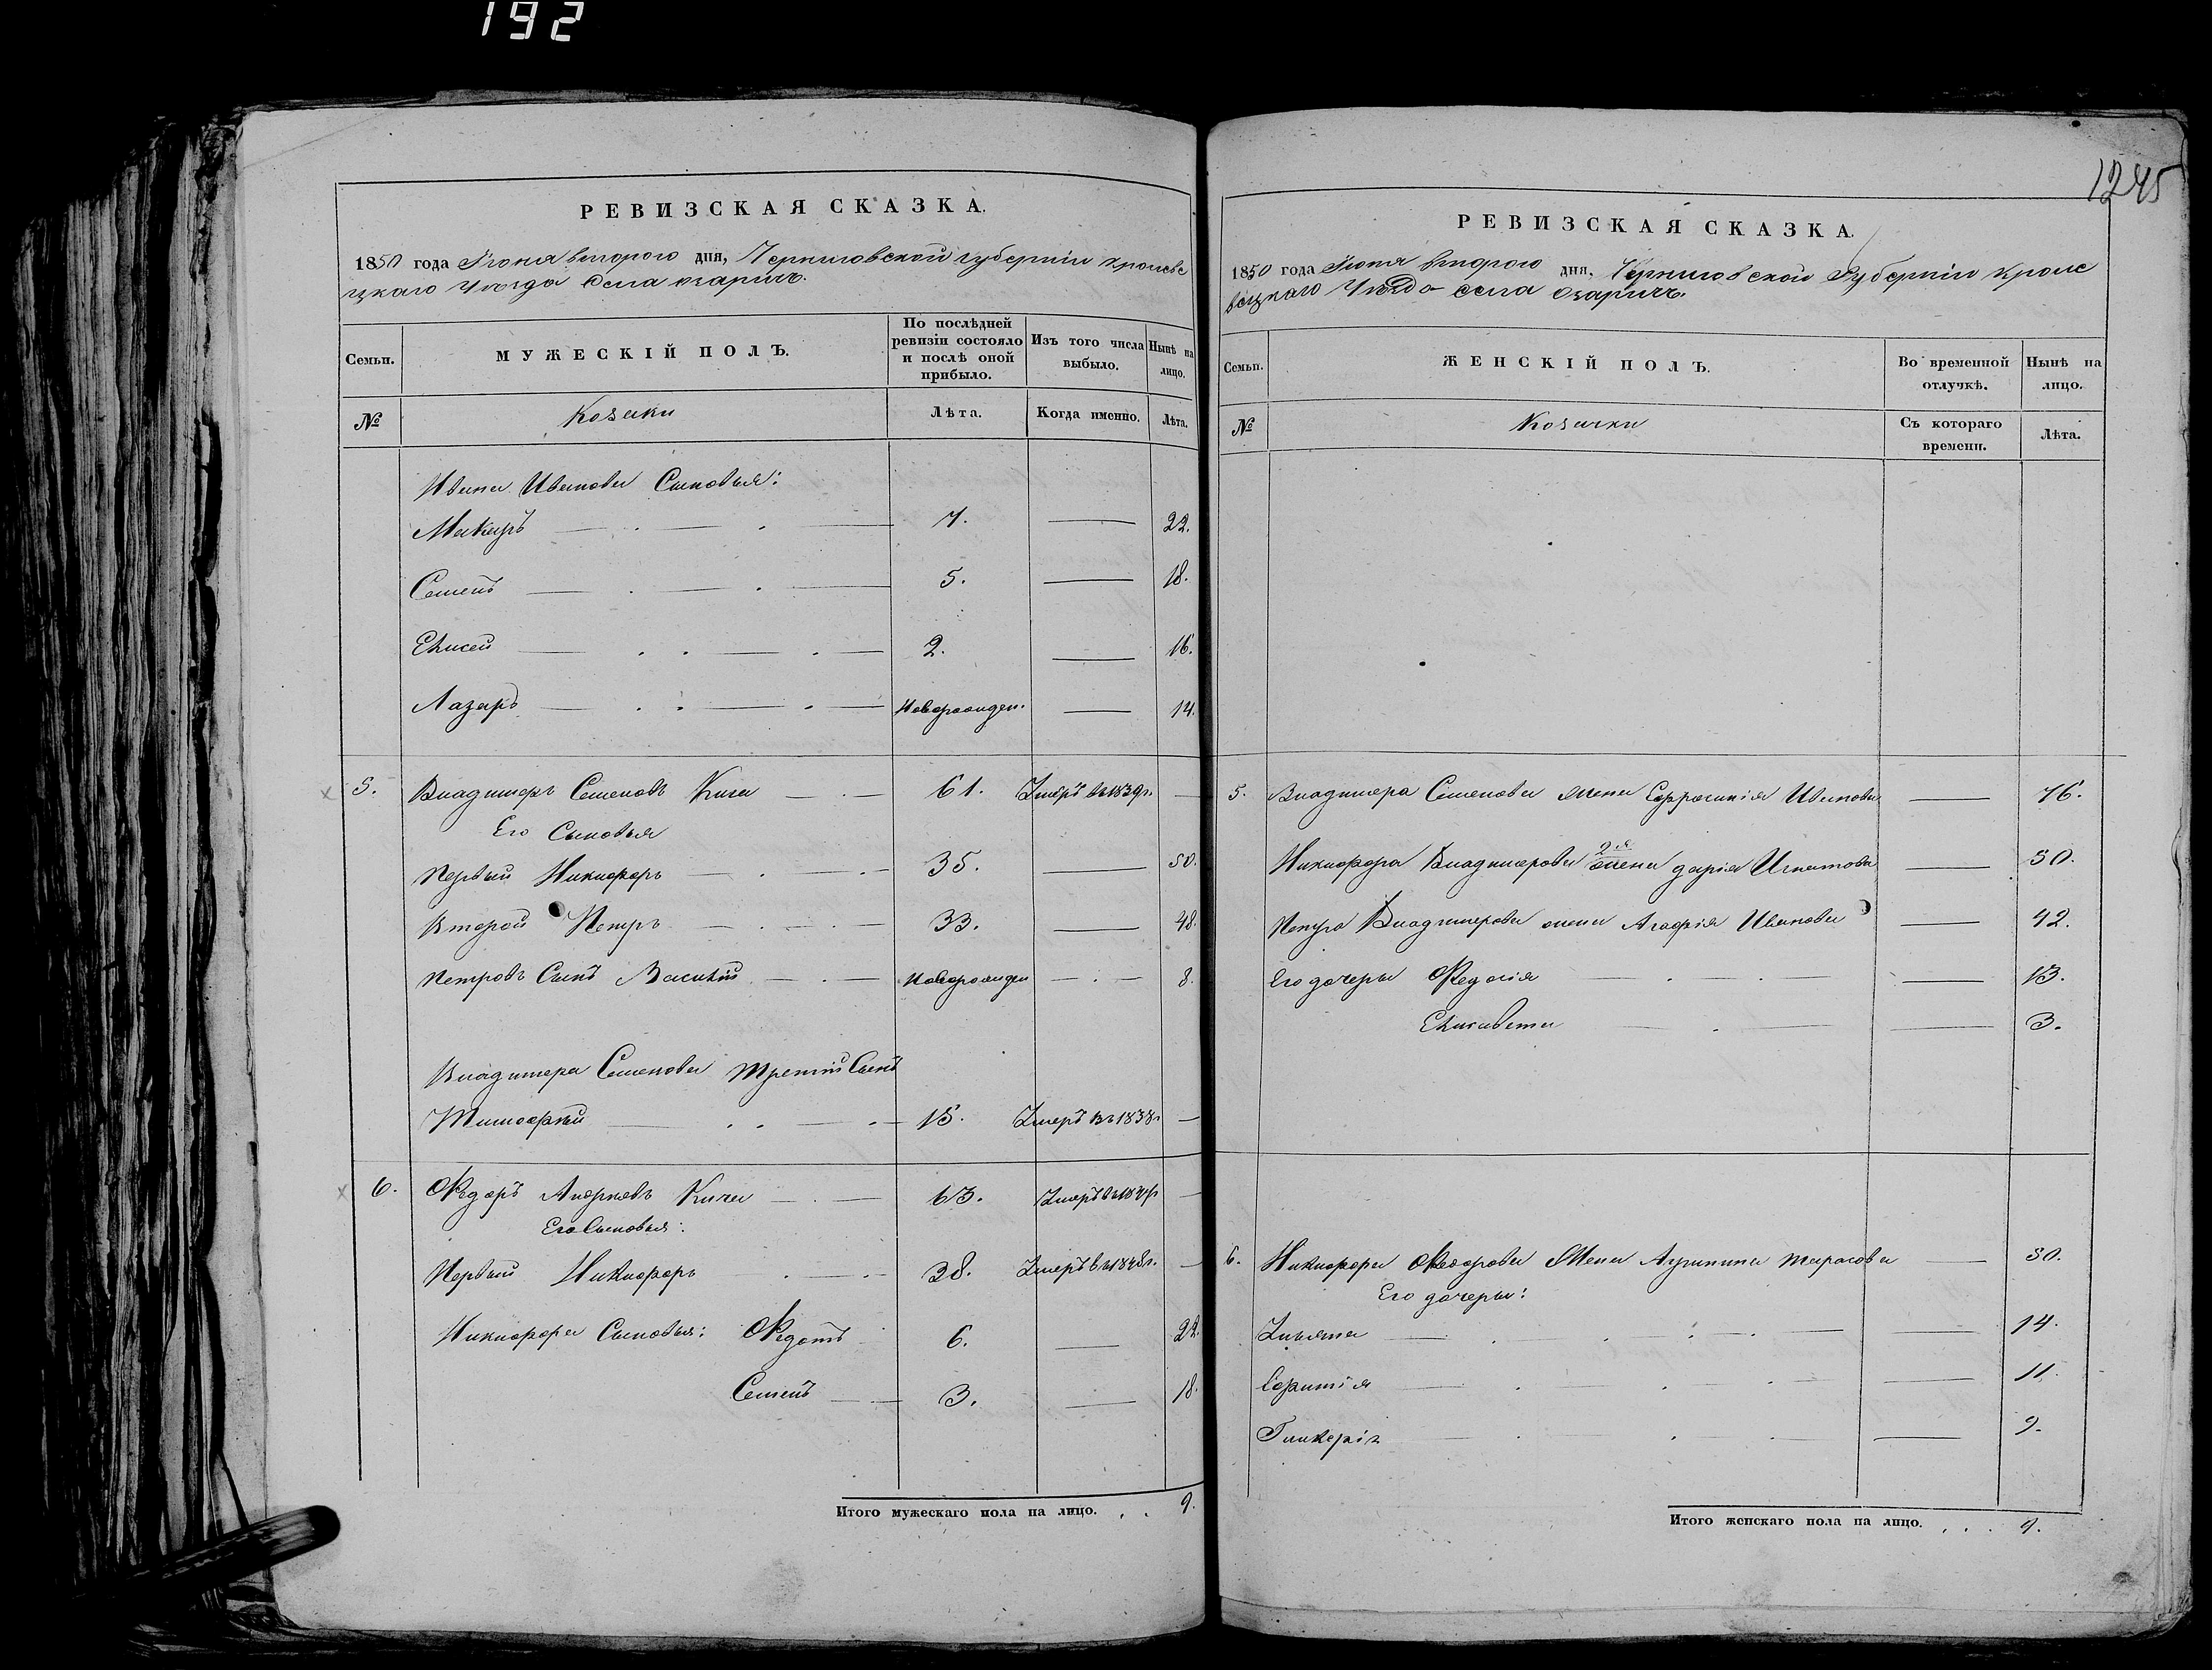 192
РЕВИЗСКАЯ СКАЗКА.
1850 года Iюня второго дня, Черниговской губернiи кролеве
цкаго Уѣзда Села озаричъ.
Семьи. МУЖЕСКIЙ ПОЛЪ. По послѣдней ревизiи состояло и послѣ оной прибыло. Изъ того числа выбыло. Нынѣ на лицо.
№ Козаки Лѣта. Когда именно. Лѣта.
Ивана Иванова Сыновья:
Макаръ 7. 22.
Семенъ 5. 18.
Елисей 2. 16.
Лазарь новорожден. 14.
5. Владимеръ Семеновъ Кича 61. Умеръ въ 1839 г.
Его Сыновья
Первый Никифоръ 35. 50.
Второй Петръ 33. 48.
Петровъ Сынъ Василiй новорожден 8.
Владимера Семенова третiй Сынъ
Тимофей 15. Умеръ въ 1838 г
6. Федоръ Кича 63. Умеръ
Его Сыновья:
Первый Никифоръ 38. Умеръ въ 1848 г.
Никифора Сыновья: Федотъ 6. 22.
Семенъ 3. 18.
Итого мужескаго пола на лицо. . . 9.
1245
РЕВИЗСКАЯ СКАЗКА.
1850 года Iюня второго дня, Черниговской Губернiи кроле
вецкаго Уѣзда села озаричъ.
Семьи. ЖЕНСКIЙ ПОЛЪ. Во временной отлучкѣ. Нынѣ на лицо.
№ Козачки Съ котораго времени. Лѣта.
5. Владимера Семенова жена Ефросинiя Иванова 76.
Никифора Владимерова 2я жена дарiя Игнатова 50.
Петра Владимерова жена Агафiя Иванова 42.
Его дочери Федосiя 13.
Елисавета 3.
6. Никифора Федорова Жена Агрипина тарасова 50.
Его дочери:
Ульяна 14.
11.
Гликерiя 9.
Итого женскаго пола на лицо. . . . 9.